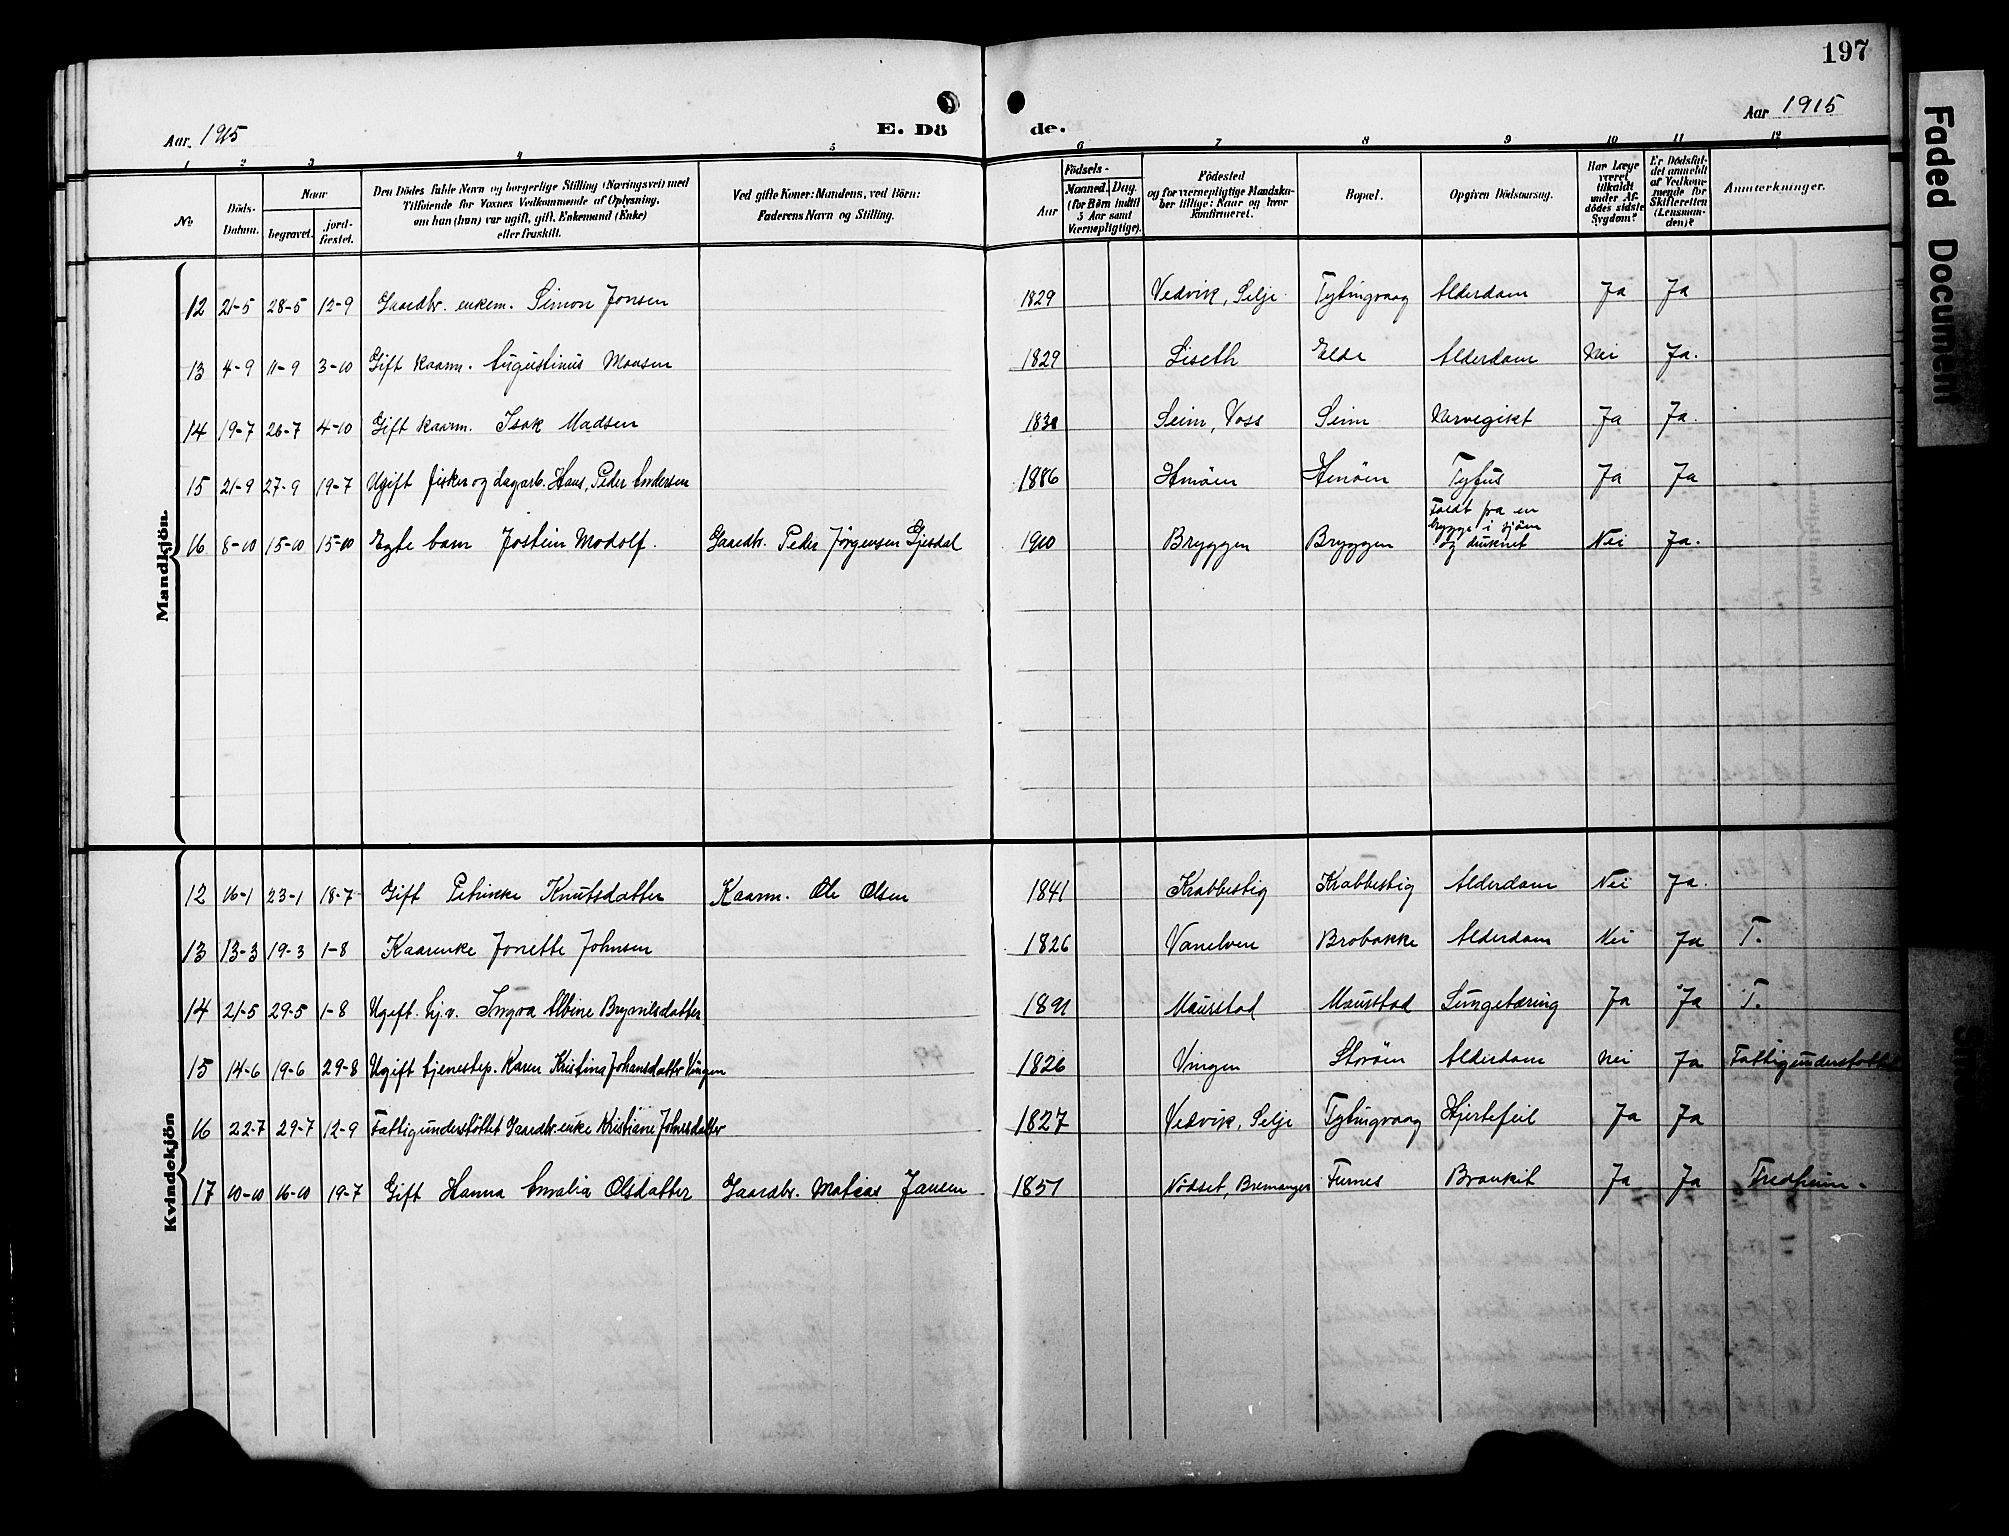 197
Aar 1915
E. Döde.
Aar 1915
1 2 3 4 5 6 7 8 9 10 11 12
No.
Döds-Datum.
Naar
begravet.
jord-fæstet.
Den Dödes fulde Navn og borgerlige Stilling (Næringsvei) med
Tilföiende for Voxnes Vedkommende af Oplysning,
om han (hun) var ugift, gift, Enkemand (Enke)
eller fraskilt.
Ved gifte Koner: Mandens, ved Börn:
Faderens Navn og Stilling.
Födsels-
Aar
Maaned. Dag.
(for Börn indtil
5 Aar samt
Værnepligtige).
Födested
og for værnepligtige Mandska-
ber tillige: Naar og hvor
konfirmeret.
Bopæl.
Opgiven Dödsaarsag.
Har Læge
været
tilkaldt
under Af-
dödes sidste
Sygdom?
Er Dödsfal-
det anmeldt
af Vedkom-
mende for
Skifteretten
(Lensman-
den)?
Anmerkninger.
Mandkjön.
12 21-5 28-5 12-9 Gaardbr. enkem. Simon Jonsen 1829 Vedvik, Selje Tytingvaag Alderdom Ja Ja
13 4-9 11-9 3-10 Gift kaarm. Augustinus Monsen 1829 Liseth Elde Alderdom Nei Ja.
14 19-7 26-7 4-10 Gift kaarm. Isak Madsen Seim, Voss Seim Nervegikt Ja Ja.
15 21-9 27-9 19-7 Ugift fisker og dagarb. Hans, Peder Andersen 1886 Hmöen Hmöen Tyfus Ja Ja
16 8-10 15-10 15-10 Egte barn Jostein Modolf. Gaardbr. Peder Jørgensen Gjesdal 1910 Bryggen Bryggen Faldt fra en
brygge i sjöen
og druknet Nei Ja.
Kvindekjön
12 16-1 23-1 18-7 Gift Petrikke Knutsdatter Kaarm. Ole Olsen 1841 Krabbestig Krabbestig Alderdom Nei Ja.
13 13-3 19-3 1-8 Kaarenke Jonette Johnsen 1826 Vanelven Brobakke Alderdom Nei Ja T.
14 21-5 29-5 1-8 Ugift. hj.v. Ingva Albine Brynilsdatter 1891 Maurstad Maurstad Lungetæring Ja Ja T.
15 14-6 19-6 29-8 Ugift tjenestep. Karen Kristina Johansdatter Vingen 1826 Vingen Storöen Alderdom Nei Ja Fattigunderstöttet
16 22-7 29-7 12-9 Fattigunderstöttet Gaardbr. enke Kristiane Johnsdatter 1827 Vedvik, Selje Tytingvaag Hjertefeil Ja Ja
17 10-10 16-10 19-7 Gift Hanna Amalia Olsdatter Gaardbr. Matias Jansen 1857 Nödset, Bremanger Furnes Bronkit Ja Ja
Faded Document